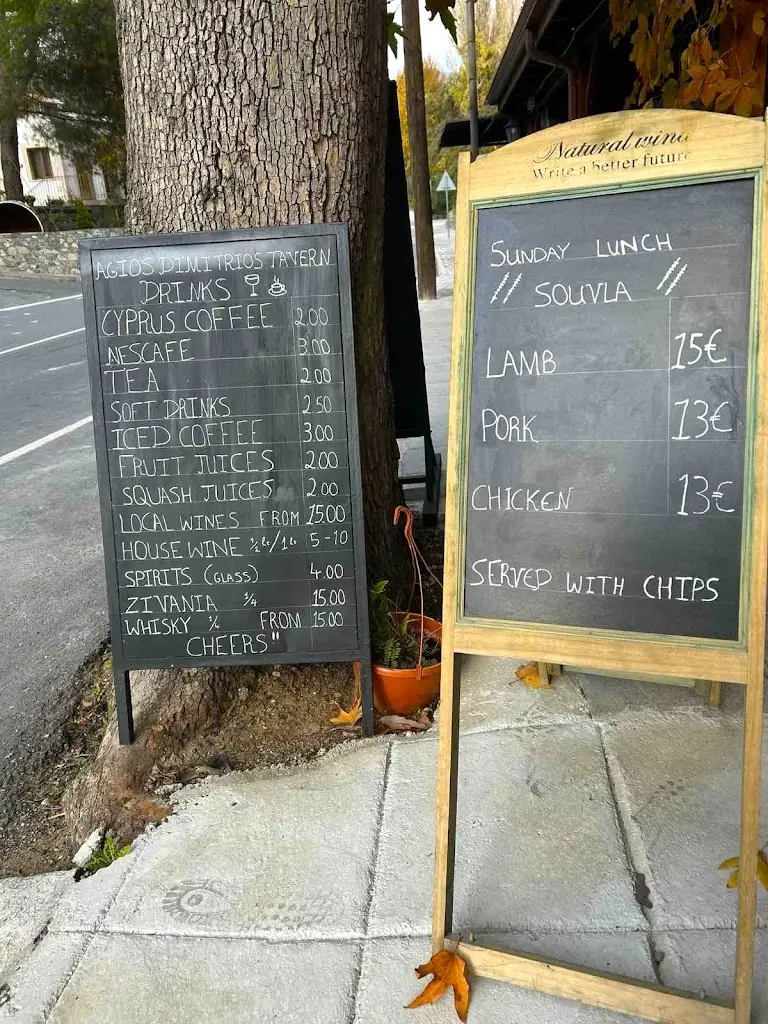 AGIOS DIMITRIOS TAVERN
DRINKS
CYPRUS COFFEE 2.00
NESCAFE 3.00
TEA 2.00
SOFT DRINKS 2.50
ICED COFFEE 3.00
FRUIT JUICES 2.00
SQUASH JUICES 2.00
LOCAL WINES FROM 15.00
HOUSE WINE ½ lt/1 lt 5-10
SPIRITS (GLASS) 4.00
ZIVANIA ¼ 15.00
WHISKY ¼ FROM 15.00
CHEERS"
Natural wind
Write a better future
SUNDAY LUNCH
// SOUVLA //
LAMB 15€
PORK 13€
CHICKEN 13€
SERVED WITH CHIPS